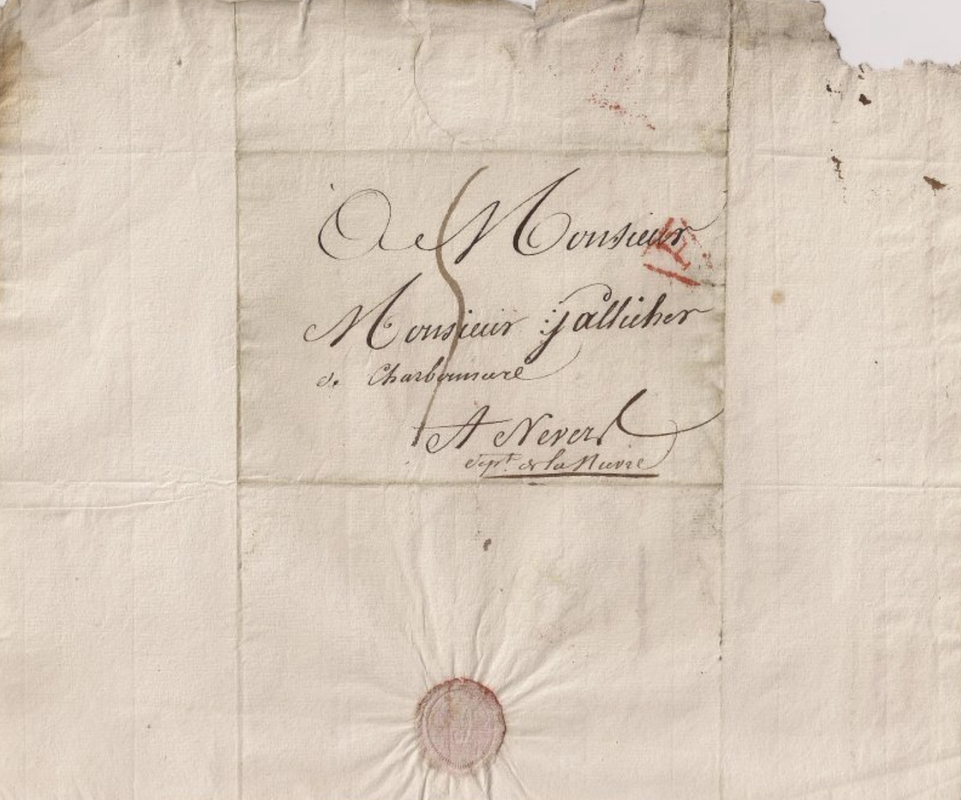 A Monsieur
Monsieur Gallicher
de Charbonniere
A Nevers
Dept. de la Nievre